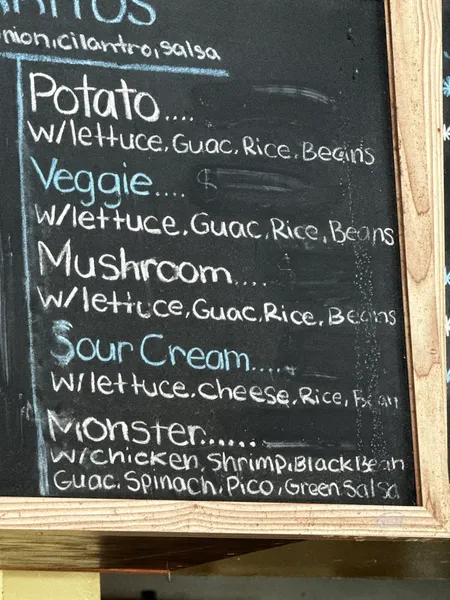 onion, cilantro, salsa
Potato....
w/lettuce, Guac, Rice, Beans
Veggie.... $
w/lettuce, Guac, Rice, Beans
Mushroom....
w/lettuce, Guac, Rice, Beans
Sour Cream.....
w/lettuce, cheese, Rice, Bean
Monster......
w/chicken, Shrimp, Black Bean
Guac, Spinach, Pico, Green Salsa